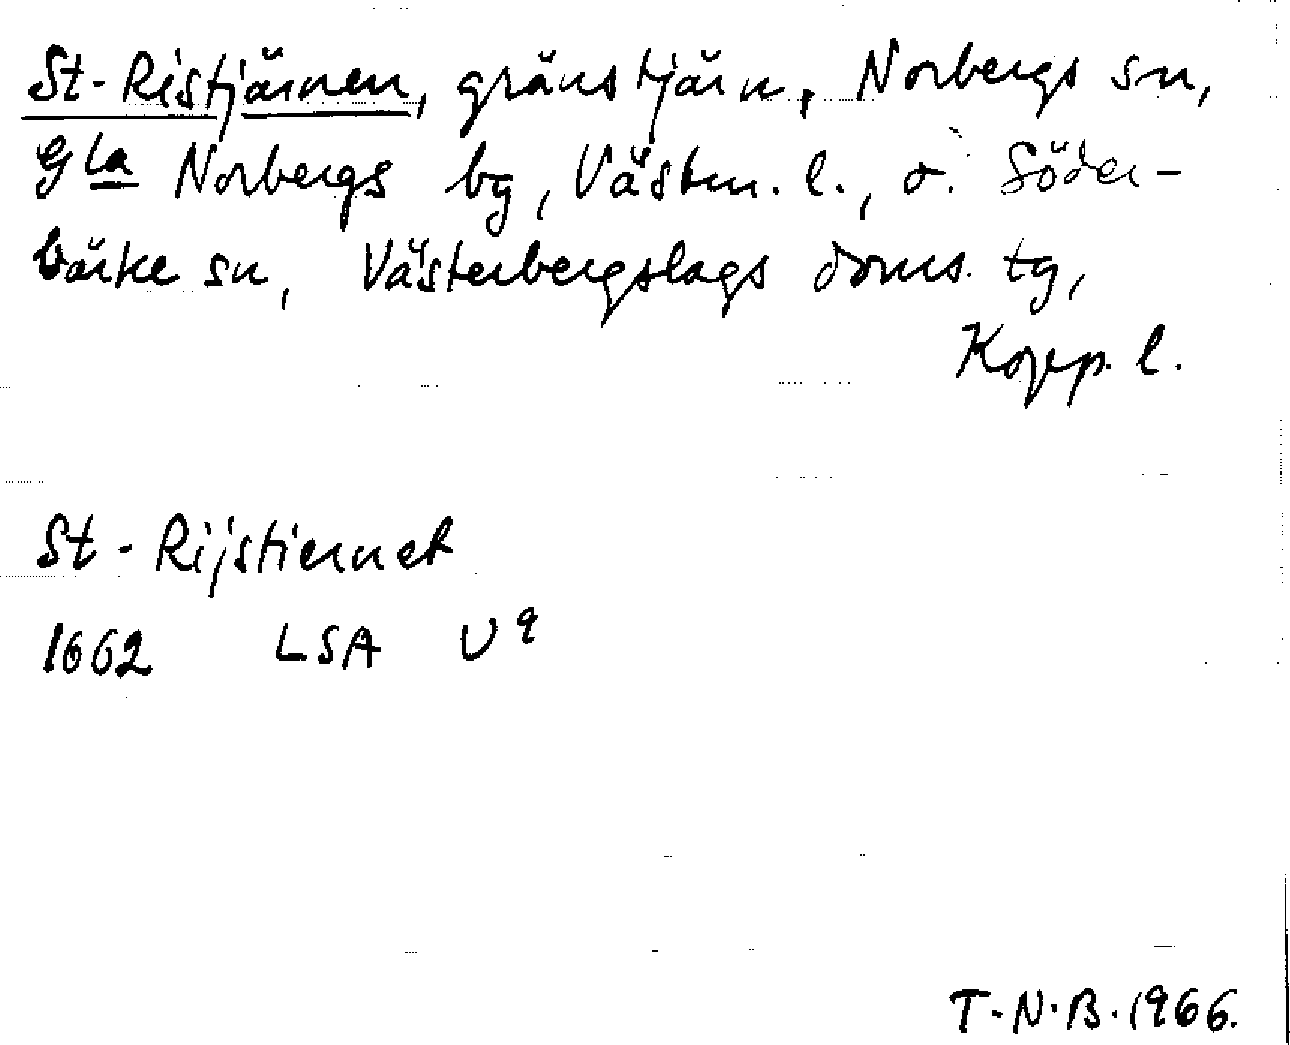 St-Ristjärnen, gränstjärn, Norbergs sn,
Gla Norbergs by, Västm. l., o. Söder-
bärke sn, Västerbergslags doms. tg,
Kopp. l.
St-Rijstiernet
1662 LSA U9
T.N.B. 1966.